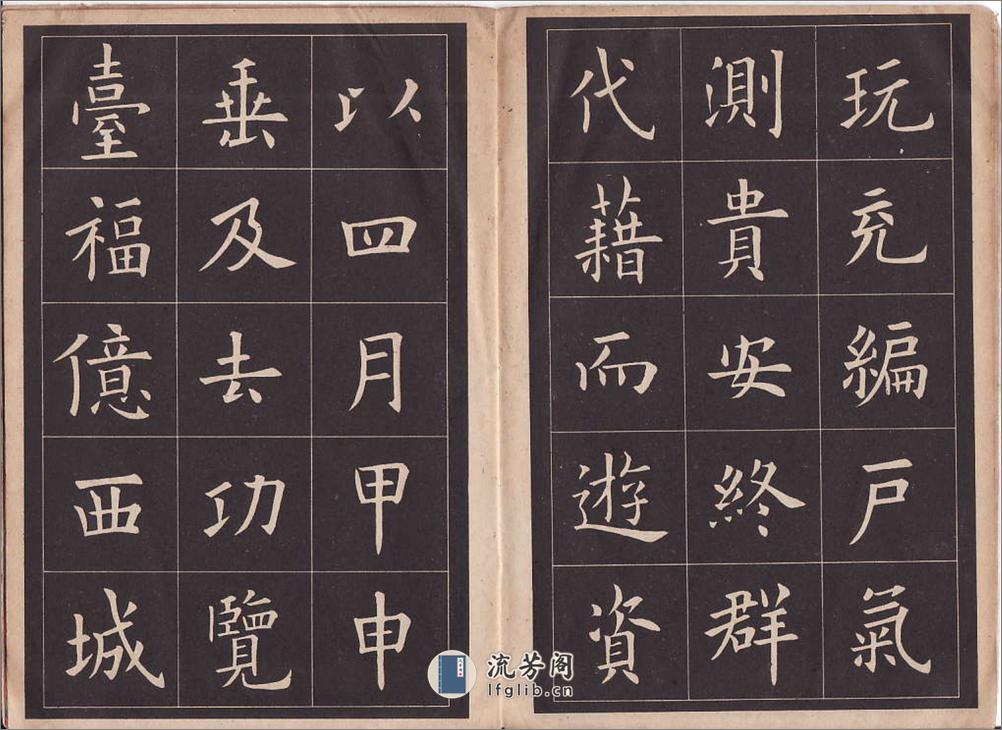 玩充編戸氣
測貴安終群
代藉而遊資
以四月甲申
垂及去功覽
臺福億西城
流芳阁
lfglib.cn